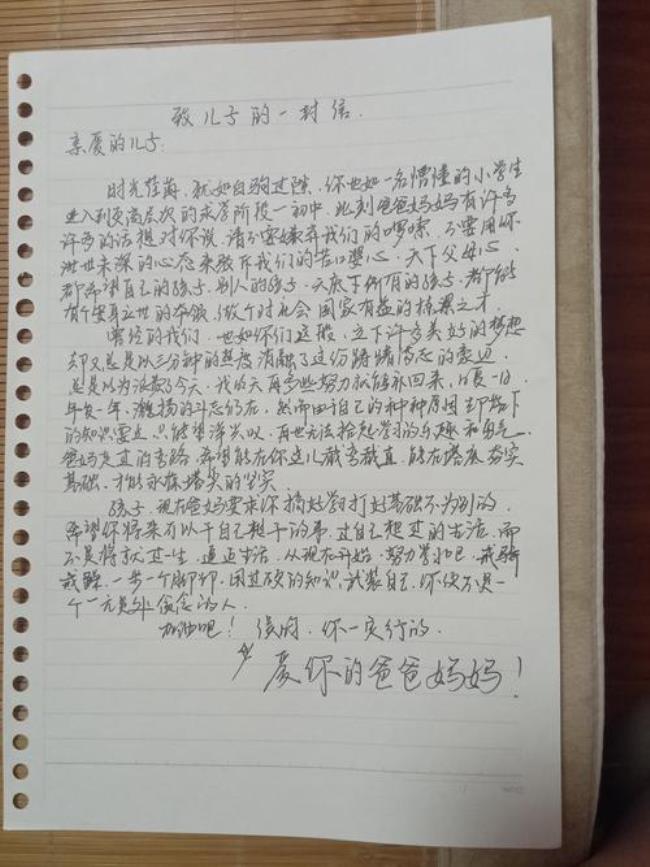 致儿子的一封信.
亲爱的儿子:
时光荏苒，犹如白驹过隙，你也如一名懵懂的小学生
进入到更高层次的求学阶段—初中，此刻爸爸妈妈有许多
许多的话想对你说，请不要嫌弃我们的啰嗦，不要用你
涉世未深的心态来敷斥我们的苦口婆心，天下父母心
都希望自己的孩子，别人的孩子，天底下所有的孩子，都能
有个安身立世的本领，做个对社会国家有益的栋梁之才.
曾经的我们，也如你们这般，立下许多美好的梦想
却又总是以三分钟的热度消融了这份踌躇满志的豪迈，
总是以为没了今天，我明天再多些努力就能补回来，日复一日
年复一年，激扬的斗志仍在，然而由于自己的种种原因却落下
的知识要点，只能望洋兴叹，再也无法拾起学习的乐趣和勇气.
爸妈走过的弯路，希望能在你这儿截弯截直，能在塔底夯实
基础，才能亦有塔尖的坚实.
孩子，现在爸妈要求你搞好学习打好基础不为别的，
希望你将来可以干自己想干的事，过自己想过的生活，而
不是将就过一生，逼迫生活，从现在开始，努力学习吧，戒骄
戒躁，一步一个脚印，用过硬的知识武装自己，你决不是
一个一无是处贪念的人.
加油吧！ 你一定行的.
爱你的爸爸妈妈！